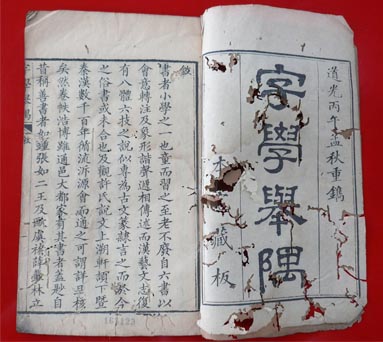 道光丙午孟秋重鐫
字學舉隅
本
藏板
敘
書者小學之一也童而習之至老不廢自六書以
會意轉注及象形諧聲遞相傳述而漢藝文志復
有八體六技之說似專為古文篆隸言之而於今
之俗書或未合也及觀許氏說文上溯軒頡下暨
秦漢數千百年循流泝源會而通之可謂詳且核
矣然卷帙浩博雖通邑大都家有其書者蓋尠自
昔稱善書者如鍾張如二王及歐虞褚薛輩林立